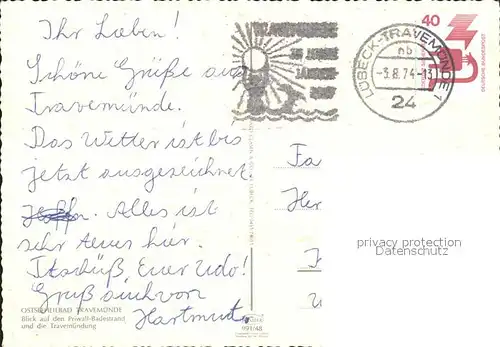 Ihr Lieben!
Schöne Grüße aus
Travemünde.
Das Wetter ist bis
jetzt ausgezeichnet
Alles ist
sehr teuer hier.
Tschüß, Euer Udo!
Gruß auch von
Hartmut.
OSTSEEHEILBAD TRAVEMÜNDE
Blick auf den Priwall-Badestrand
und die Travemündung
991/48
TRAVEMÜNDE
LÜBECK-TRAVEMÜNDE 1
nb
-3.8.74-13
24
40
DEUTSCHE BUNDESPOST
Fa
Her
privacy protection
Datenschutz